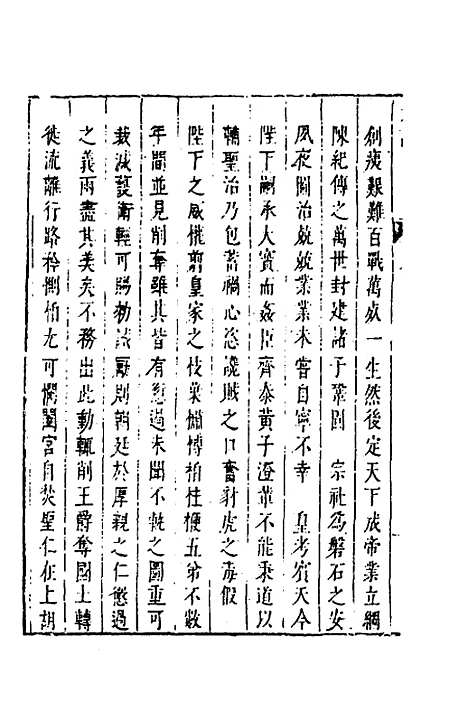 創痍艱難百戰萬處一生然後定天下成帝業立綱
陳紀傳之萬世封建諸子鞏固　宗社為磐石之安
夙夜圖治兢兢業業未嘗自寧不幸　皇考賓天今
陛下嗣承大寶而姦臣齊泰黃子澄輩不能秉道以
輔聖治乃包蓄禍心恣讒賊之口奮豺虎之毒假
陛下之威權剪皇家之枝葉橚榑柏桂楩五弟不數
年間並見削奪雖其皆有愆過未聞不軌之圖重可
裁減護衛輕可賜勑誡厭則朝廷於厚親之仁懲過
之義兩盡其美矣不務出此動輒削王爵奪國土轉
徙流離行路矜惻柏尤可憫闔宮自焚聖仁在上胡